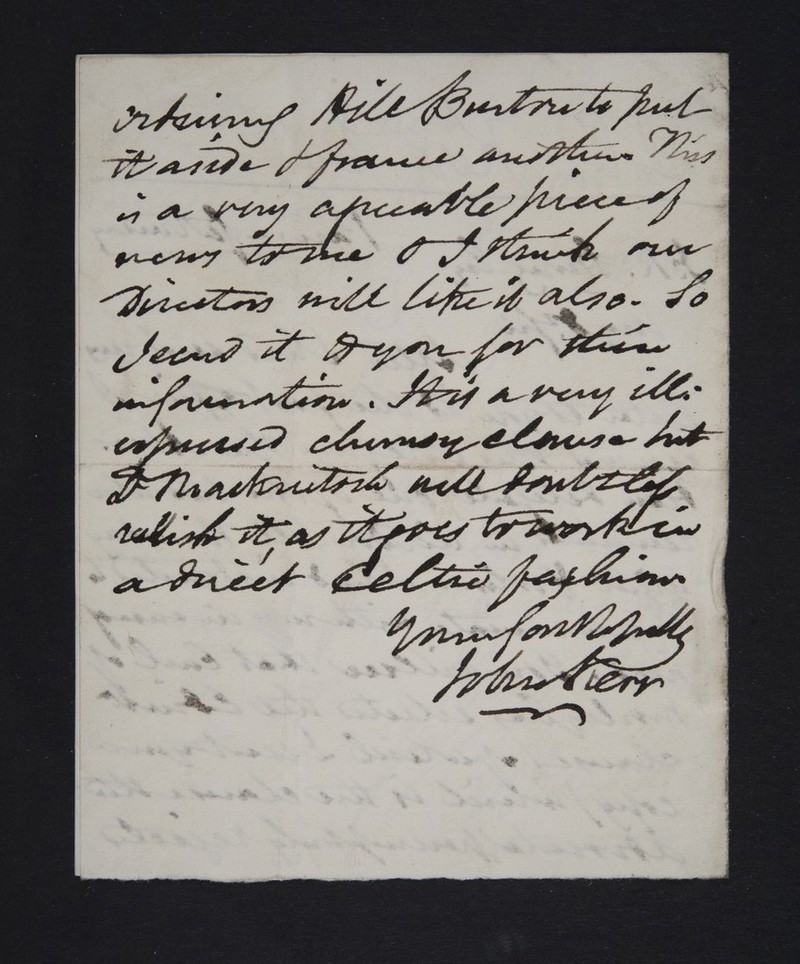 advising Hill Burton to put
it aside & frame another. This
is a very agreeable piece of
news to me & I think our
Directors will like it also. So
I send it to you for their
information. It is a very ill-
expressed clumsy clause but
Dr Mackintosh will doubtless
relish it, as it goes to work in
a direct Celtic fashion
Yours
John Kerr